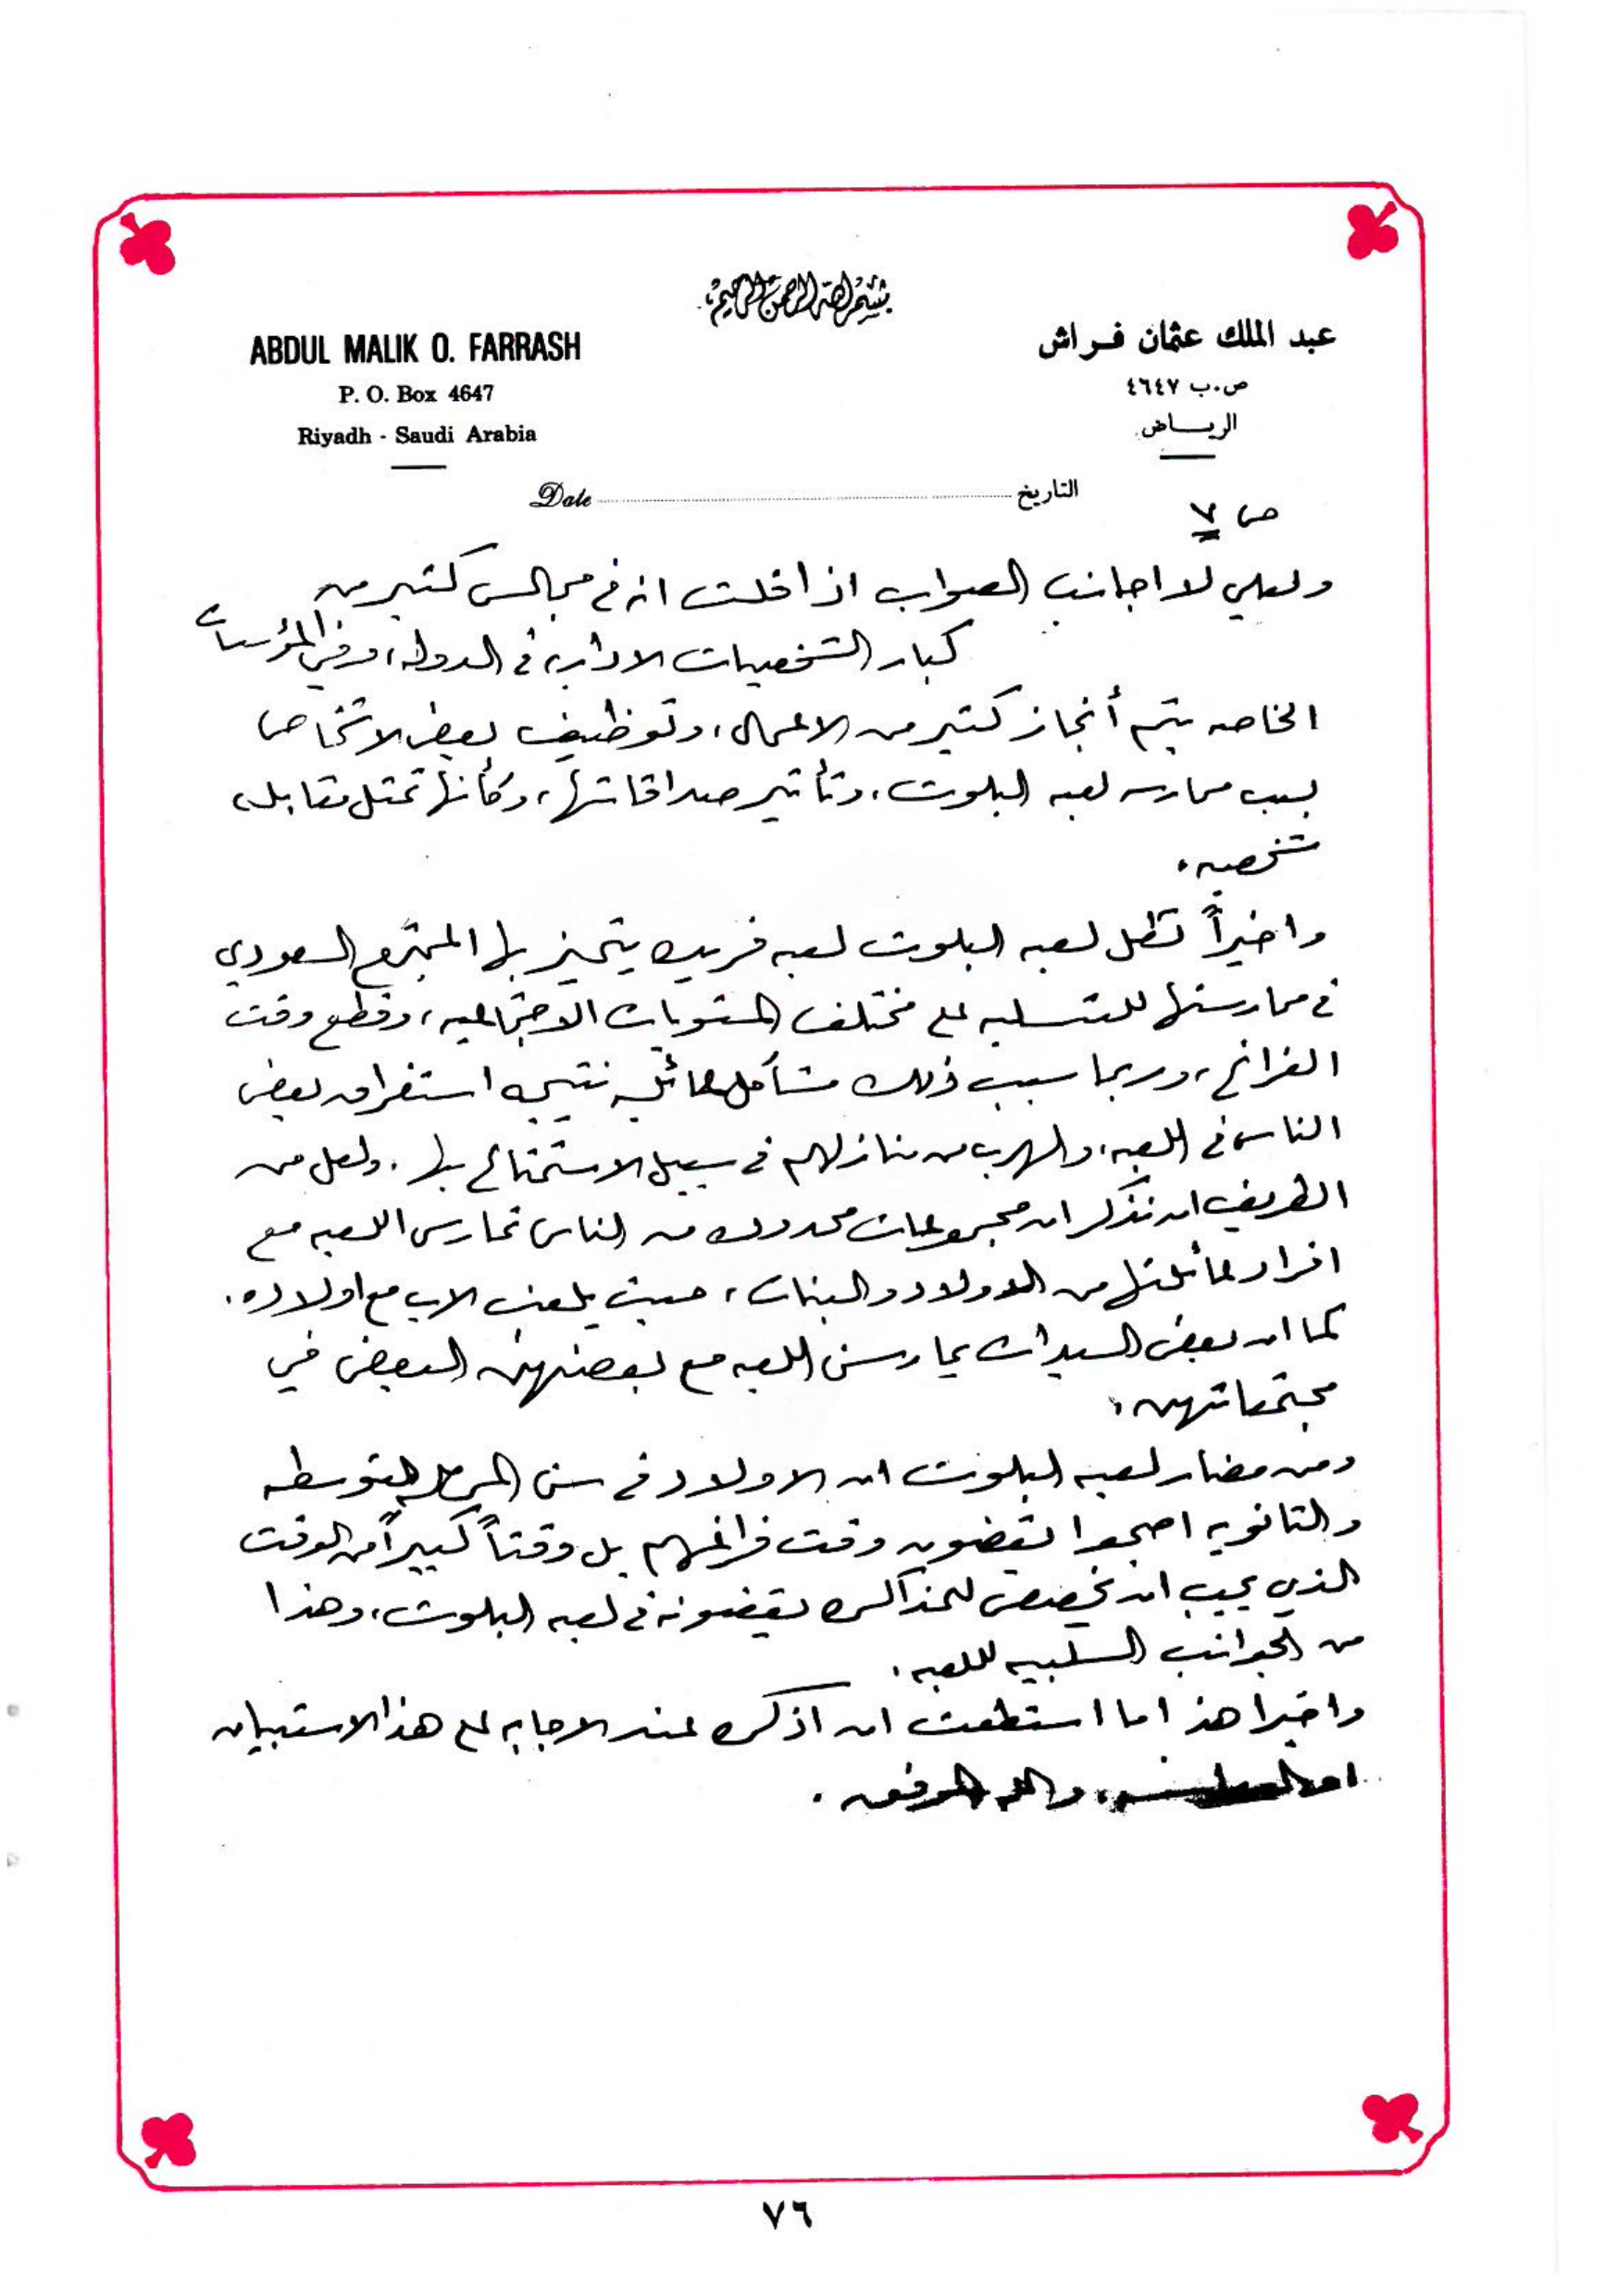 بسم الله الرحمن الرحيم
عبد الملك عثمان فراش
ص.ب ٤٦٤٧
الرياض
ABDUL MALIK O. FARRASH
P. O. Box 4647
Riyadh - Saudi Arabia
التاريخ Date
ص ٧
ولعلي لا اجانب الصواب اذا قلت انه في مجالس كثير من
كبار الشخصيات الاداريه في الدوله، وفي المؤسسات
الخاصه يتم أنجاز كثير من الاعمال، وتوظيف بعض الاشخاص
بسبب ممارسه لعبه البلوت، وتأثير صداقاتها، وكأنها تمثل مقابله
شخصيه.
واخيراً تظل لعبه البلوت لعبه فريده يتميز بها المجتمع السعودي
في ممارستها للتسليه على مختلف المستويات الاجتماعيه، وقطع وقت
الفراغ، وربما سبب ذلك مشاكل عائليه نتيجه استغراق بعض
الناس في اللعبه، والهرب من منازلهم في سبيل الاستمتاع بها. ولعل من
الطريف ان نذكر ان مجموعات محدوده من الناس تمارس اللعبه مع
افراد عائلتها من الاولاد والبنات، حيث يلعب الاب مع اولاده.
كما ان بعض السيدات يمارسن اللعبه مع بعضهن البعض في
مجتمعاتهن.
ومن مضار لعبه البلوت ان الاولاد في سن المرحله المتوسطه
والثانويه اصبحوا يقضون وقت فراغهم بل وقتاً كبيراً من الوقت
الذي يجب ان يخصص للمذاكره يقضونه في لعبه البلوت، وهذا
من الجوانب السلبيه للعبه.
واخيرا هذا ما استطعت ان اذكره عند الاجابه على هذا الاستبيان
والله الموفق.
٧٦